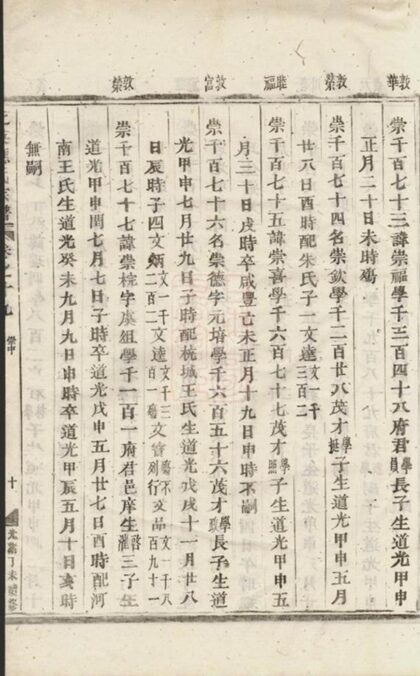 敦華
崇千百七十三諱崇福學千三百四十八府君學員長子生道光甲申
正月二十日未時殤
敦榮
崇千百七十四名崇欽學千二百廿八茂才學挺子生道光甲申五月
廿八日酉時配朱氏子一文達文一千三百二
睦福
崇千百七十五諱崇喜學千六百七十七茂才學熙子生道光甲申五
月三十日戌時卒咸豐己未正月十九日申時不嗣
敦宮
崇千百七十六名崇德字元培學千六百五十六茂才學長子生道
光甲申七月廿九日子時配杭城王氏生道光戊戌十一月廿八
日辰時子四文炳文一千二百二文達文千三百一殤文管殤不列行文品文一千八百九十一
敦榮
崇千百七十七諱崇椀字虞組學千一百一府君邑庠生啓三子生
道光甲申閏七月七日子時卒道光戊申五月廿七日酉時配河
南王氏生道光癸未九月九日申時卒道光甲辰五月十日亥時
無嗣
崇中
十
光緒丁未續修